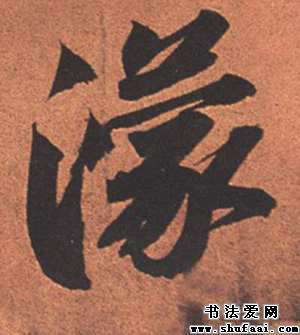 濛
书法爱网
www.shufaai.com